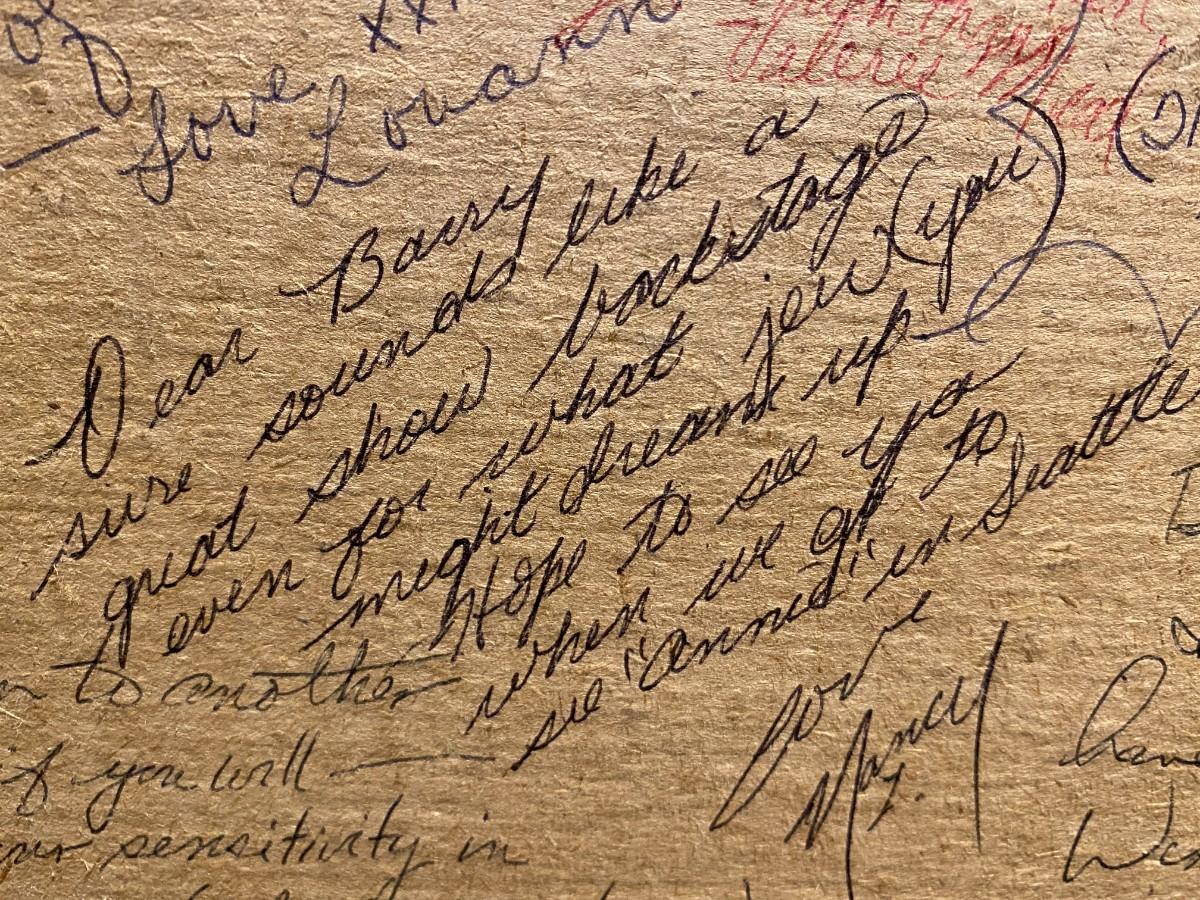 Love
Louann
Valerie
Dear Barry
sure sounds like a
great show backstage
even for what jew (you)
might dreamt up
Hope to see ya
when we go to
see "Annie" in Seattle
Love
Nancy
to another
if you will —
sensitivity in